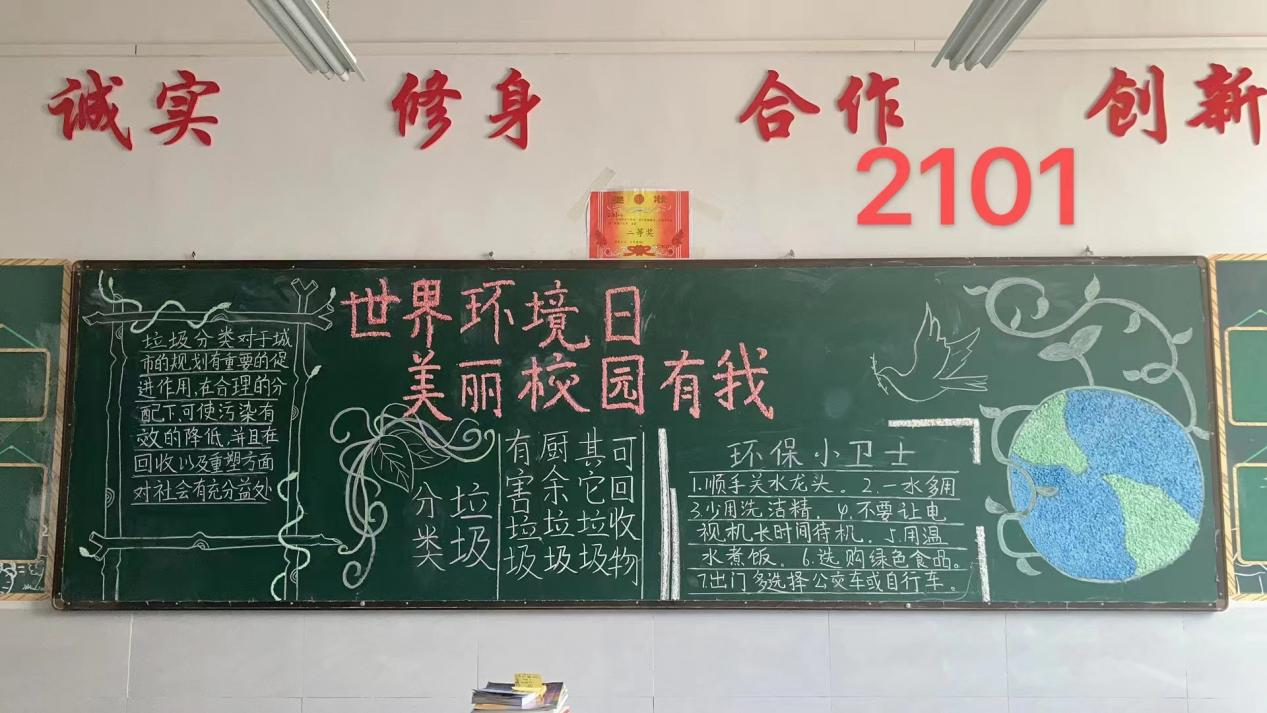 诚实 修身 合作 创新
2101
二等奖
世界环境日
美丽校园有我
垃圾分类对于城
市的规划有重要的促
进作用,在合理的分
配下,可使污染有
效的降低,并且在
回收以及重塑方面
对社会有充分益处
垃圾
分类
可回收物
其它垃圾
厨余垃圾
有害垃圾
环保小卫士
1.顺手关水龙头。2.一水多用
3.少用洗洁精。4.不要让电
视机长时间待机。5.用温
水煮饭。6.选购绿色食品。
7.出门多选择公交车或自行车.